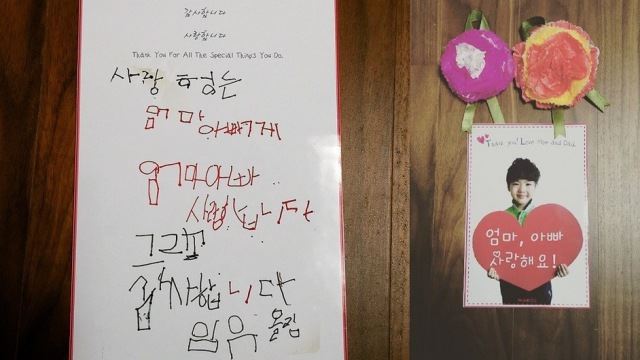 감사합니다
사랑합니다
Thank You For All The Special Things You Do.
사랑 하는
엄마
아빠에게
엄마아빠
사랑합니다
그리고
감사합니다
올림
Thank you! Love Mom and Dad.
엄마, 아빠
사랑해요!